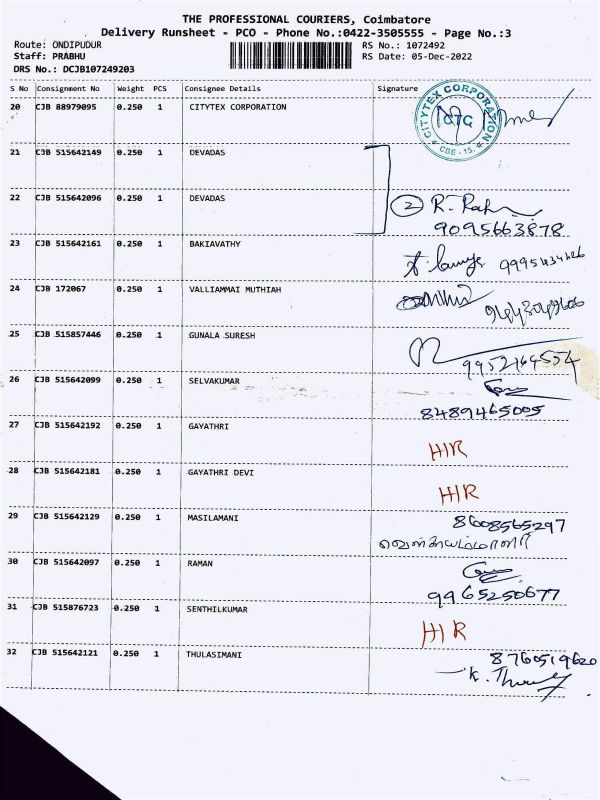 THE PROFESSIONAL COURIERS, Coimbatore
Delivery Runsheet - PCO - Phone No.:0422-3505555 - Page No.:3
Route: ONDIPUDUR RS No.: 1072492
Staff: PRABHU RS Date: 05-Dec-2022
DRS No.: DCJB107249203
S No Consignment No Weight PCS Consignee Details Signature
20 CJB 88979095 0.250 1 CITYTEX CORPORATION
CITYTEX CORPORATION CTC CBE - 15.
21 CJB 515642149 0.250 1 DEVADAS
22 CJB 515642096 0.250 1 DEVADAS 2 R.
9095663878
23 CJB 515642161 0.250 1 BAKIAVATHY
24 CJB 172067 0.250 1 VALLIAMMAI MUTHIAH
25 CJB 515857446 0.250 1 GUNALA SURESH
9952164554
26 CJB 515642099 0.250 1 SELVAKUMAR
8489465005
27 CJB 515642192 0.250 1 GAYATHRI
HIR
28 CJB 515642181 0.250 1 GAYATHRI DEVI
HIR
29 CJB 515642129 0.250 1 MASILAMANI 8608565297
30 CJB 515642097 0.250 1 RAMAN
9965250677
31 CJB 515876723 0.250 1 SENTHILKUMAR
HIR
32 CJB 515642121 0.250 1 THULASIMANI 8760519620
K.